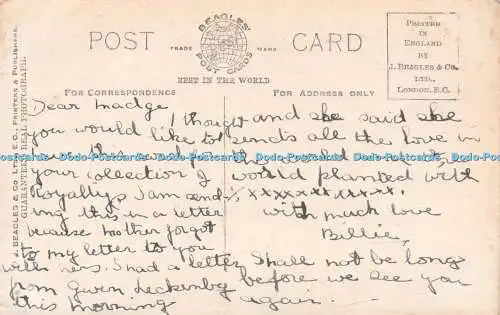 BEAGLES'
POST CARDS
POST TRADE MARK CARD
BEST IN THE WORLD
PRINTED
IN
ENGLAND
BY
J. BEAGLES & CO.
LTD.,
LONDON, E.C.
FOR CORRESPONDENCE
FOR ADDRESS ONLY
J. BEAGLES & CO., LTD., LONDON, E.C., PRINTERS & PUBLISHERS.
GUARANTEED REAL PHOTOGRAPH.
Dear Madge,
I thought
you would like to
this card
your collection of
Royaltys, I am send-
ing this in a letter
because mother forgot
to my letter to you
with hers. I had a letter
from Gwen Leckenby
this morning
and she said she
sends all the love in
the world and the
would planted with
xxxxxxxxxxxx!
with much love
Billie,
Shall not be long
before we see you
again.
Postcards - World - Delcampe